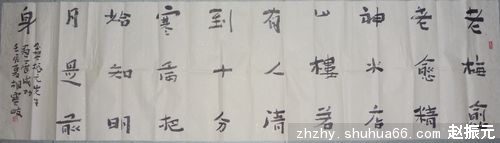 老梅愈
老愈精
神水店
山樓若
有人清
到十分
寒把
始知明
月是前
身
zhzhy.shuhua66.com 赵振元